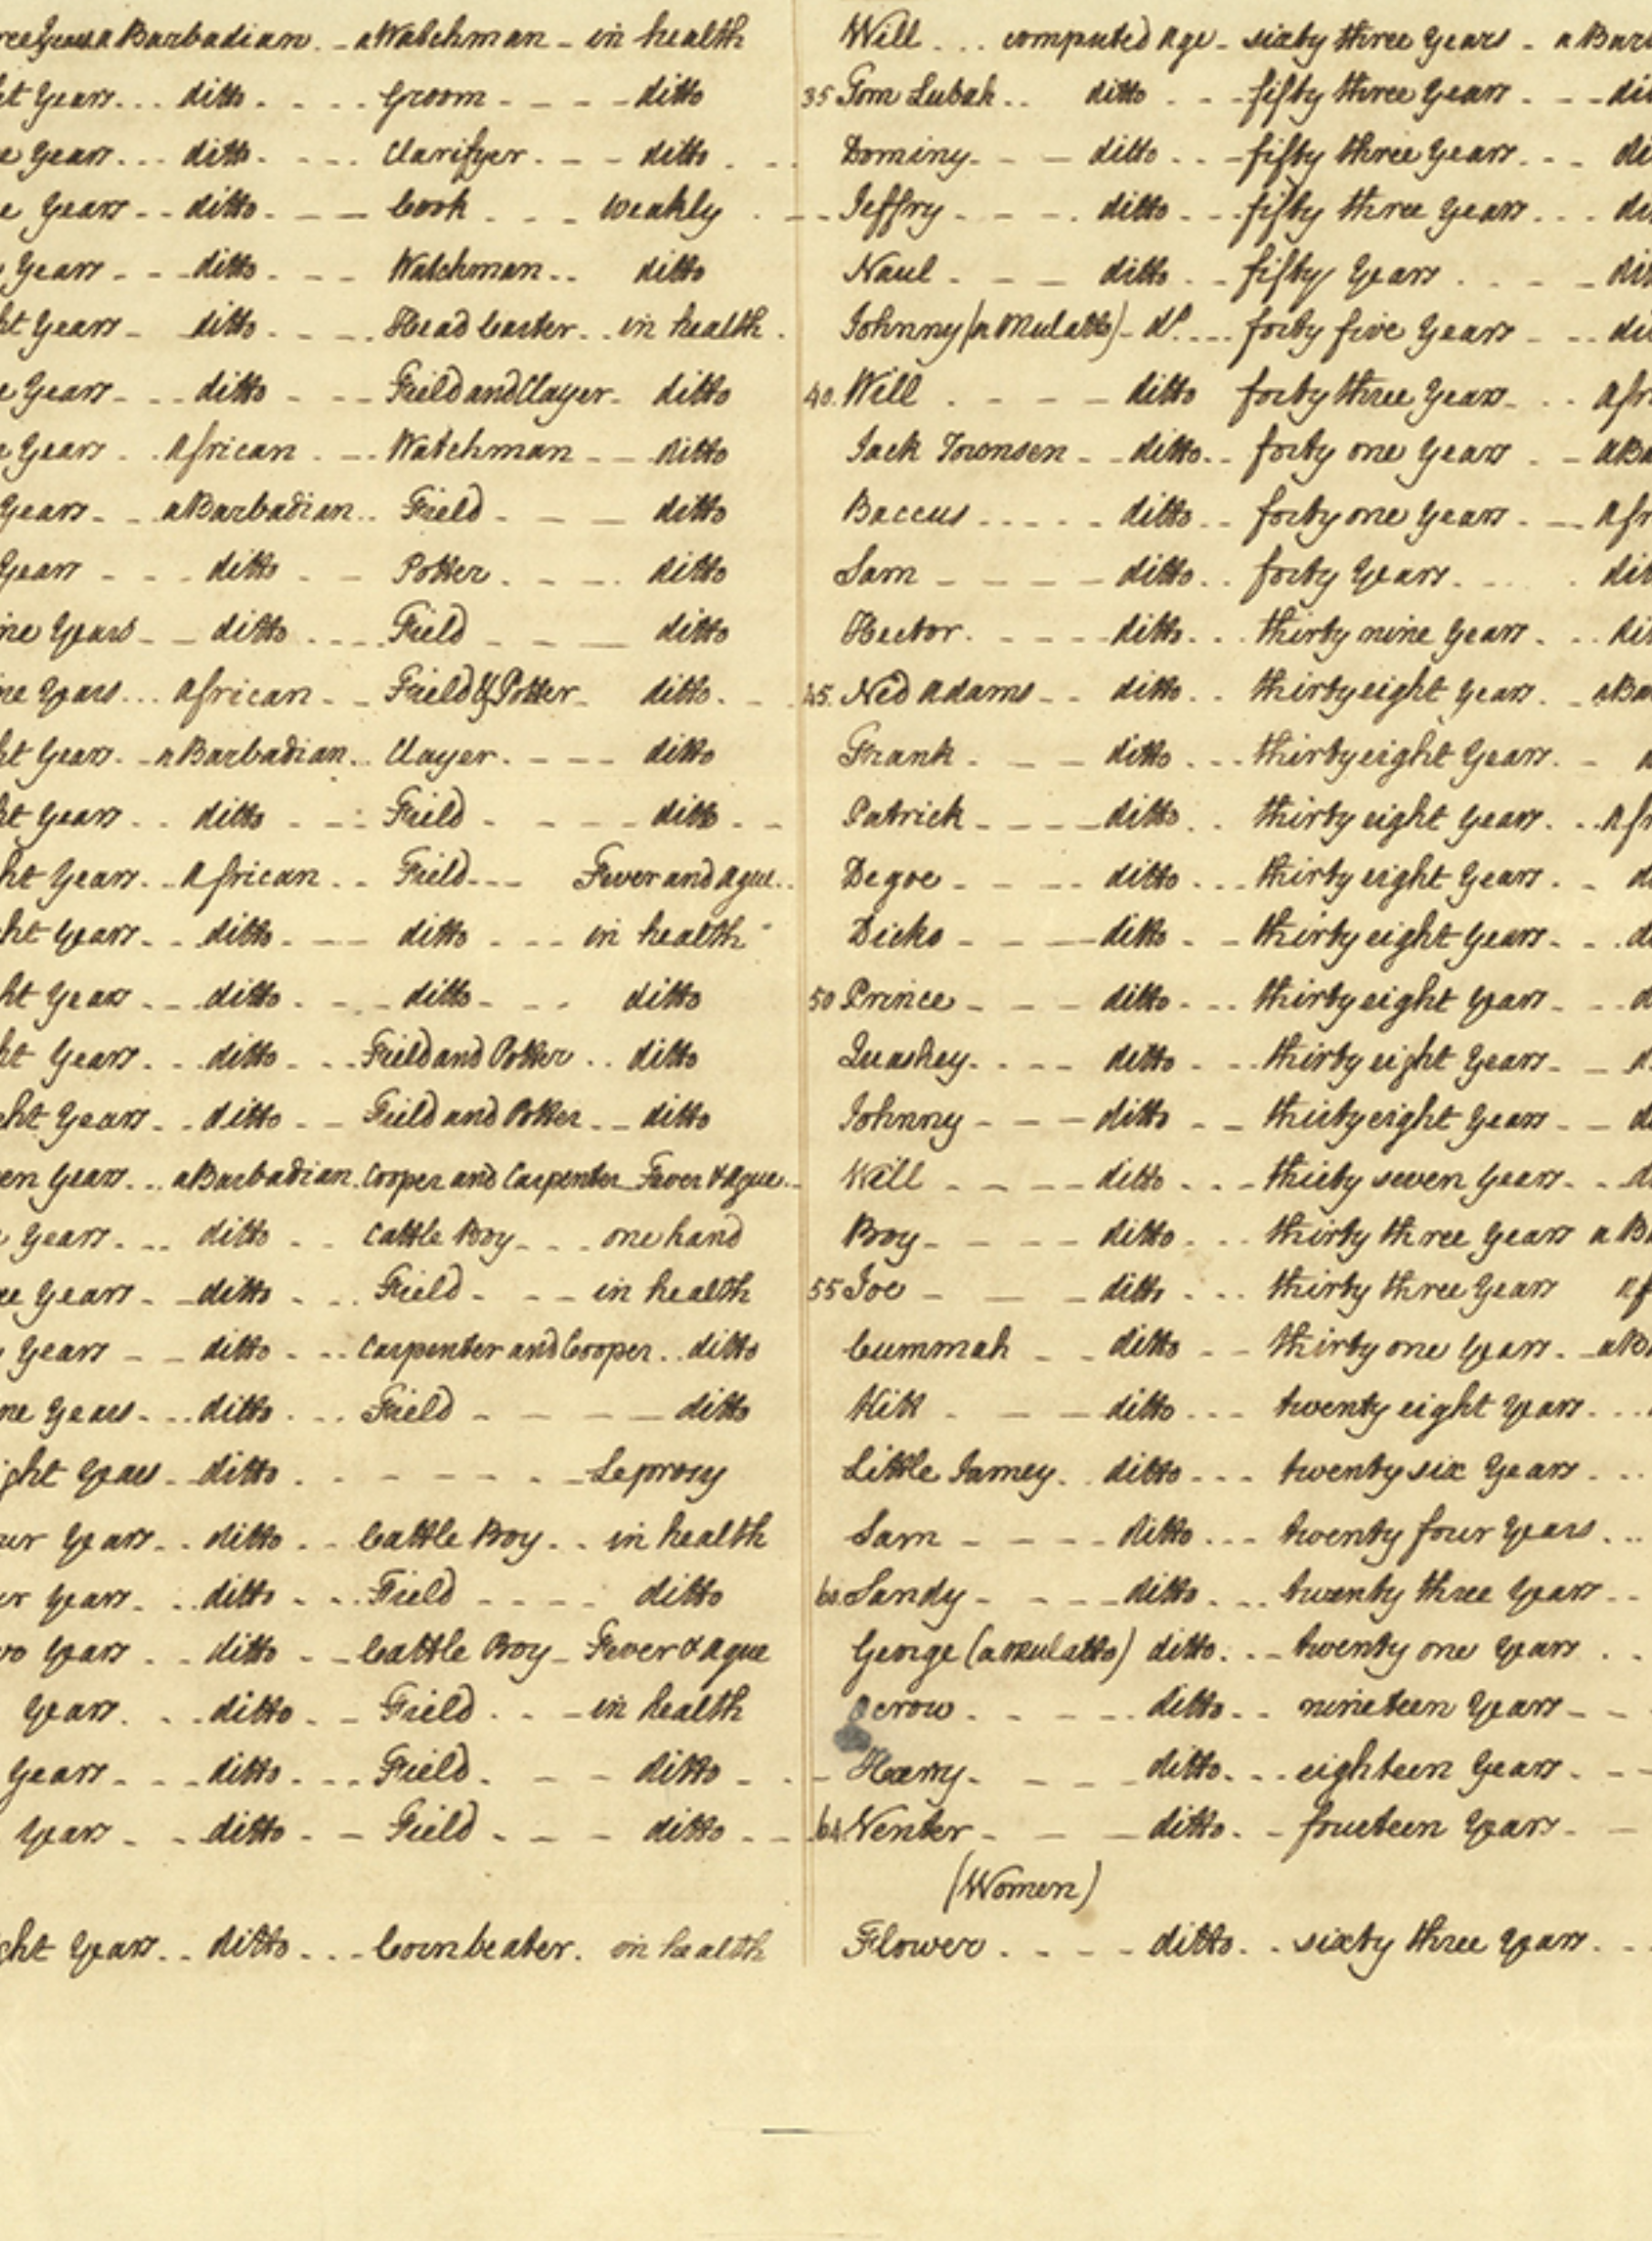 ree Years a Barbadian. - a Watchman - in health
ht Years... ditto.... Groom - - - ditto
e Years... ditto.... Clarifyer. - - ditto
e Years - - ditto. - - Cook... weakly
y Years - - - ditto. - - Watchman.. ditto
ht Years - ditto. - - Head Carter.. in health.
e Years - - - ditto - - - Field and Clayer - ditto
e Years.. African. - - Watchman - - ditto
Years - - a Barbadian.. Field - - - ditto
Years - - - ditto. - Potter.... ditto
ine Years - - ditto.... Field - - - ditto
ne Years... African - - Field & Potter - ditto.
ht Years. - a Barbadian.. Clayer. - - - ditto
ht Years.. ditto. - - Field - - - - ditto. -
ht Years.. African.. Field - - - Fever and Ague..
ght Years.. ditto. - - ditto... in health
ht Years... ditto. - - ditto - - . ditto
ht Years.. ditto. - - Field and Potter.. ditto
ght Years.. ditto. - - Field and Potter.. - ditto
en Years... a Barbadian. Cooper and Carpenter Fever & Ague..
Years.... ditto.. Cattle Boy... one hand
ee Years - - ditto... Field - - - in health
y Years - - ditto... Carpenter and Cooper.. ditto
ne Years... ditto... Field - - - - ditto
ight Years.. ditto. - - - - - Leprosy
ur Years.. ditto.. Cattle Boy.. in health
ur Years... ditto... Field.... ditto
wo Years.. ditto. - Cattle Boy - Fever & Ague
Years... ditto. - Field.. - in health
Years - - - ditto.... Field. - - ditto -
Years - - ditto. - Field. - - ditto - -
ght Years.. ditto... Cornbeater. in health
Will... computed Age - sixty three Years - a Bar
35 Tom Lubah.. ditto. - - fifty three Years. - - di
Dominy - - ditto.. - fifty three Years... di
Jeffry - - - . ditto. - - fifty three Years... di
Naul. - - ditto.. fifty Years.... di
Johnny (a Mulatto) - do.... forty five Years - .. di
40. Will. - - - ditto forty three Years - .. Afr
Jack Townsen - - ditto.. forty one Years. - a Ba
Baccus..... ditto.. forty one Years. - - Afr
Sam - - - - ditto.. forty Years.... dit
Hector. - - - - ditto... thirty nine Years... di
45. Ned Adams - - ditto.. thirty eight Years. - a Ba
Frank. - - ditto.... thirty eight Years. - a
Patrick - - - - ditto.. thirty eight Years... Afr
Degoe - - - ditto... thirty eight Years. - d
Dicko - - - ditto. - - thirty eight Years - .. d
50 Prince - - - ditto.... thirty eight Years - .. d
Quashey. - - - ditto. - - thirty eight Years - - d
Johnny - - - ditto.. - thirty eight Years - - d
Will. - - - ditto... thirty seven Years - .. d
Boy - - - - ditto... thirty three Years a Ba
55 Joe - - - ditto.... thirty three Years Af
Cummah - . ditto.. - thirty one Years. - a Ba
Kitt. - - ditto... twenty eight Years...
Little Jamey.. ditto... twenty six Years...
Sam - - - - ditto... twenty four Years...
60. Sandy - - - - ditto.... twenty three Years..
George (a Mulatto) ditto... twenty one Years..
.. - - - ditto.. nineteen Years - -
Harry. - - - ditto.... eighteen Years. - -
64 Venter - - - ditto. - fourteen Years. -
(Women)
Flower.... ditto.. sixty three Years...